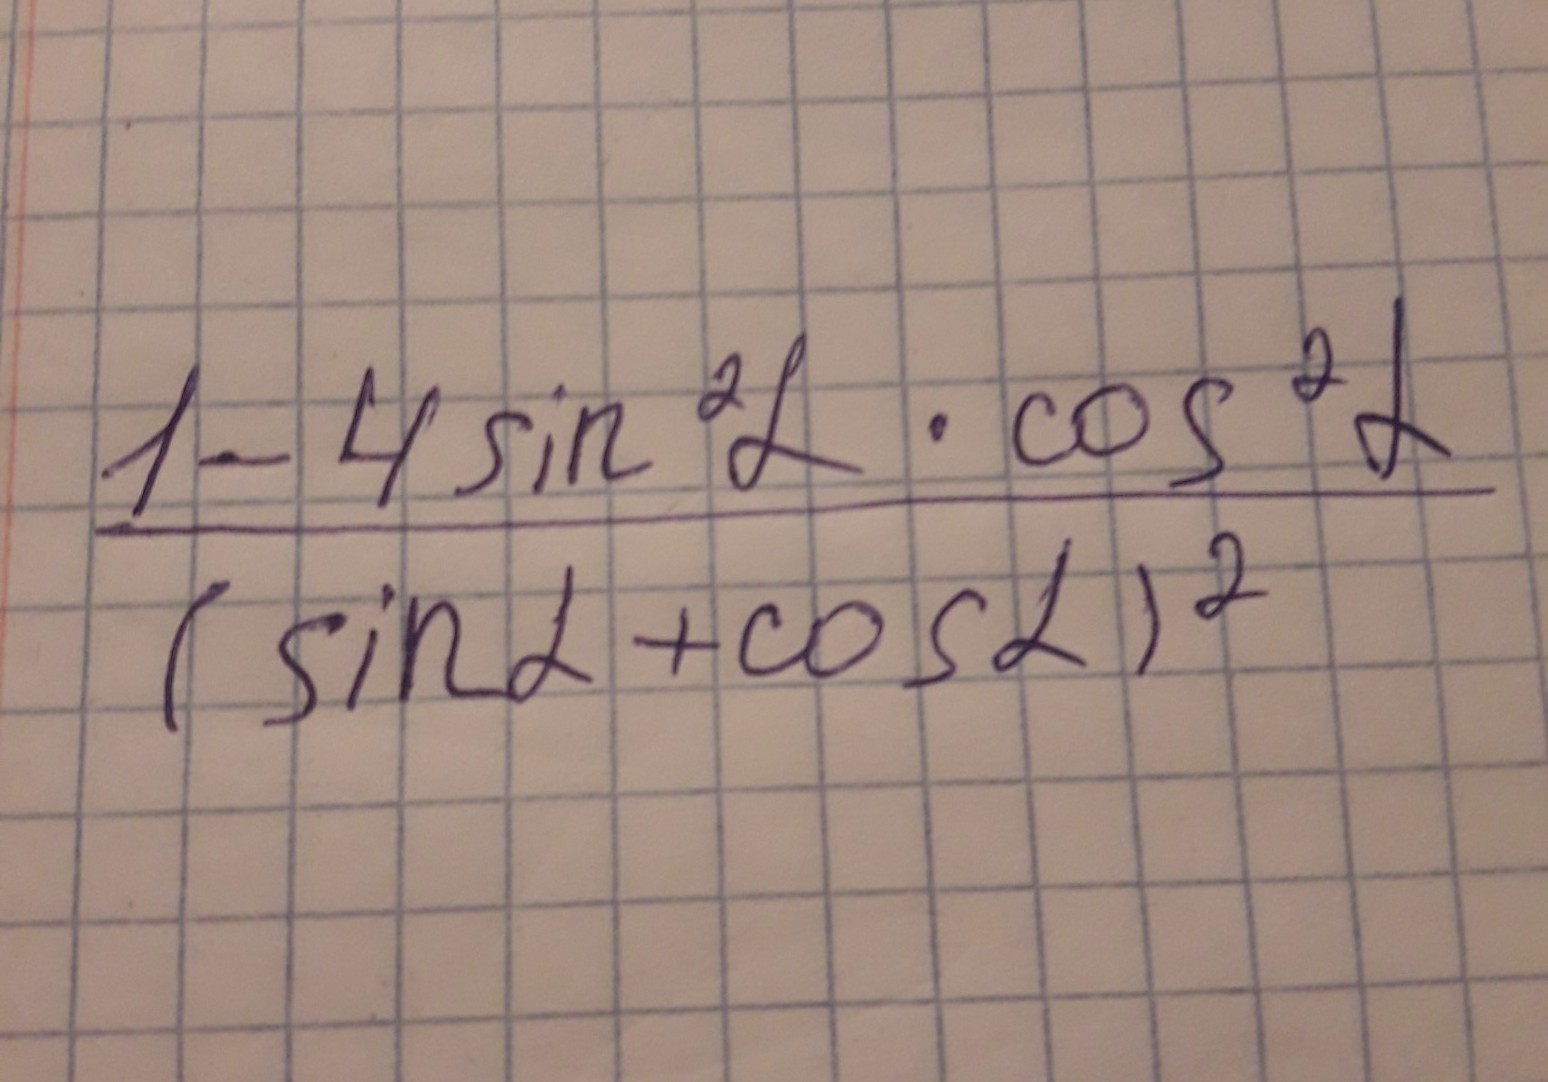 1 - 4 sin²α · cos²α
(sinα + cosα)²